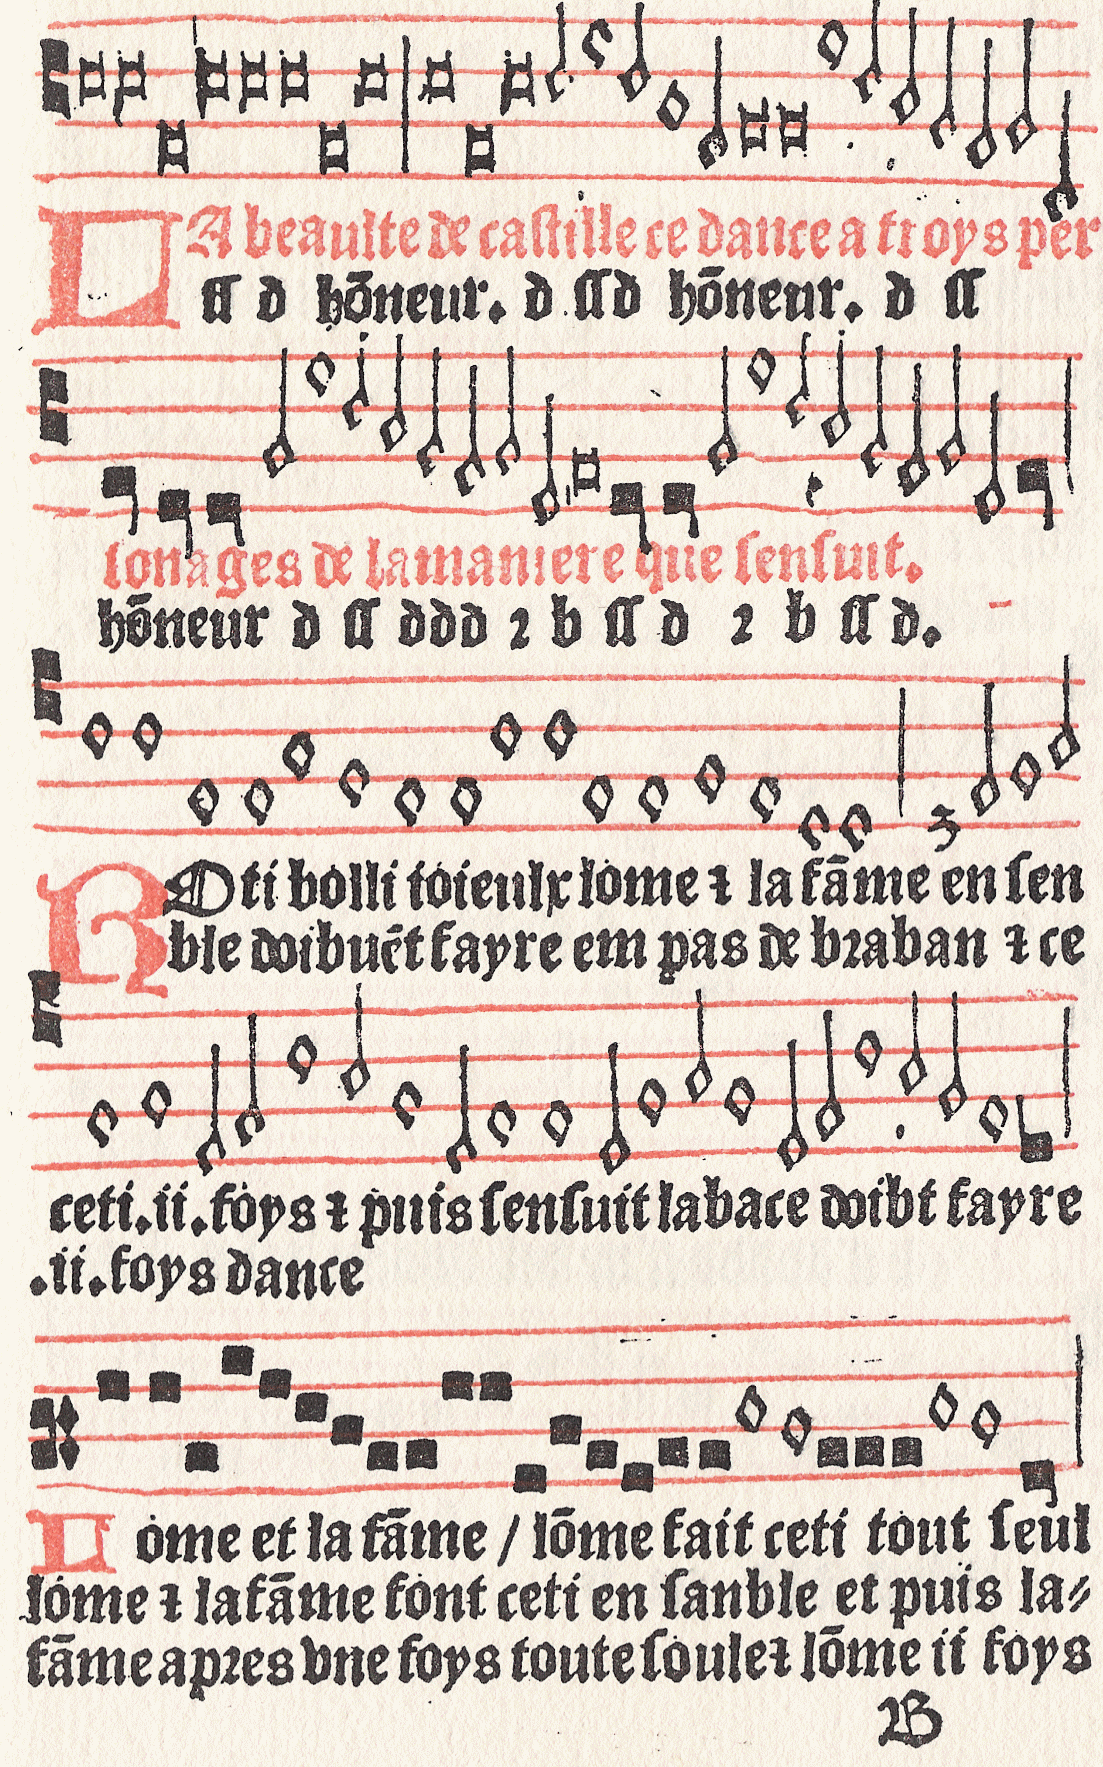 LA beaulte de castille ce dance a troys per
ss d hōneur. d ss d hōneur. d ss
sonages de lamaniere que sensuit.
hōneur d ss ddd 2 b ss d 2 b ss d.
ROti bolli ioieulx lome ⁊ la fāme en sen
ble doibuēt fayre em pas de braban ⁊ ce
ceti.ii.foys ⁊ puis sensuit labace doibt fayre
.ii.foys dance
Lome et la fāme / lōme fait ceti tout seul
lome ⁊ la fāme font ceti en sanble et puis la⸗
fāme apres vne foys toute soule ⁊ lōme ii foys
B